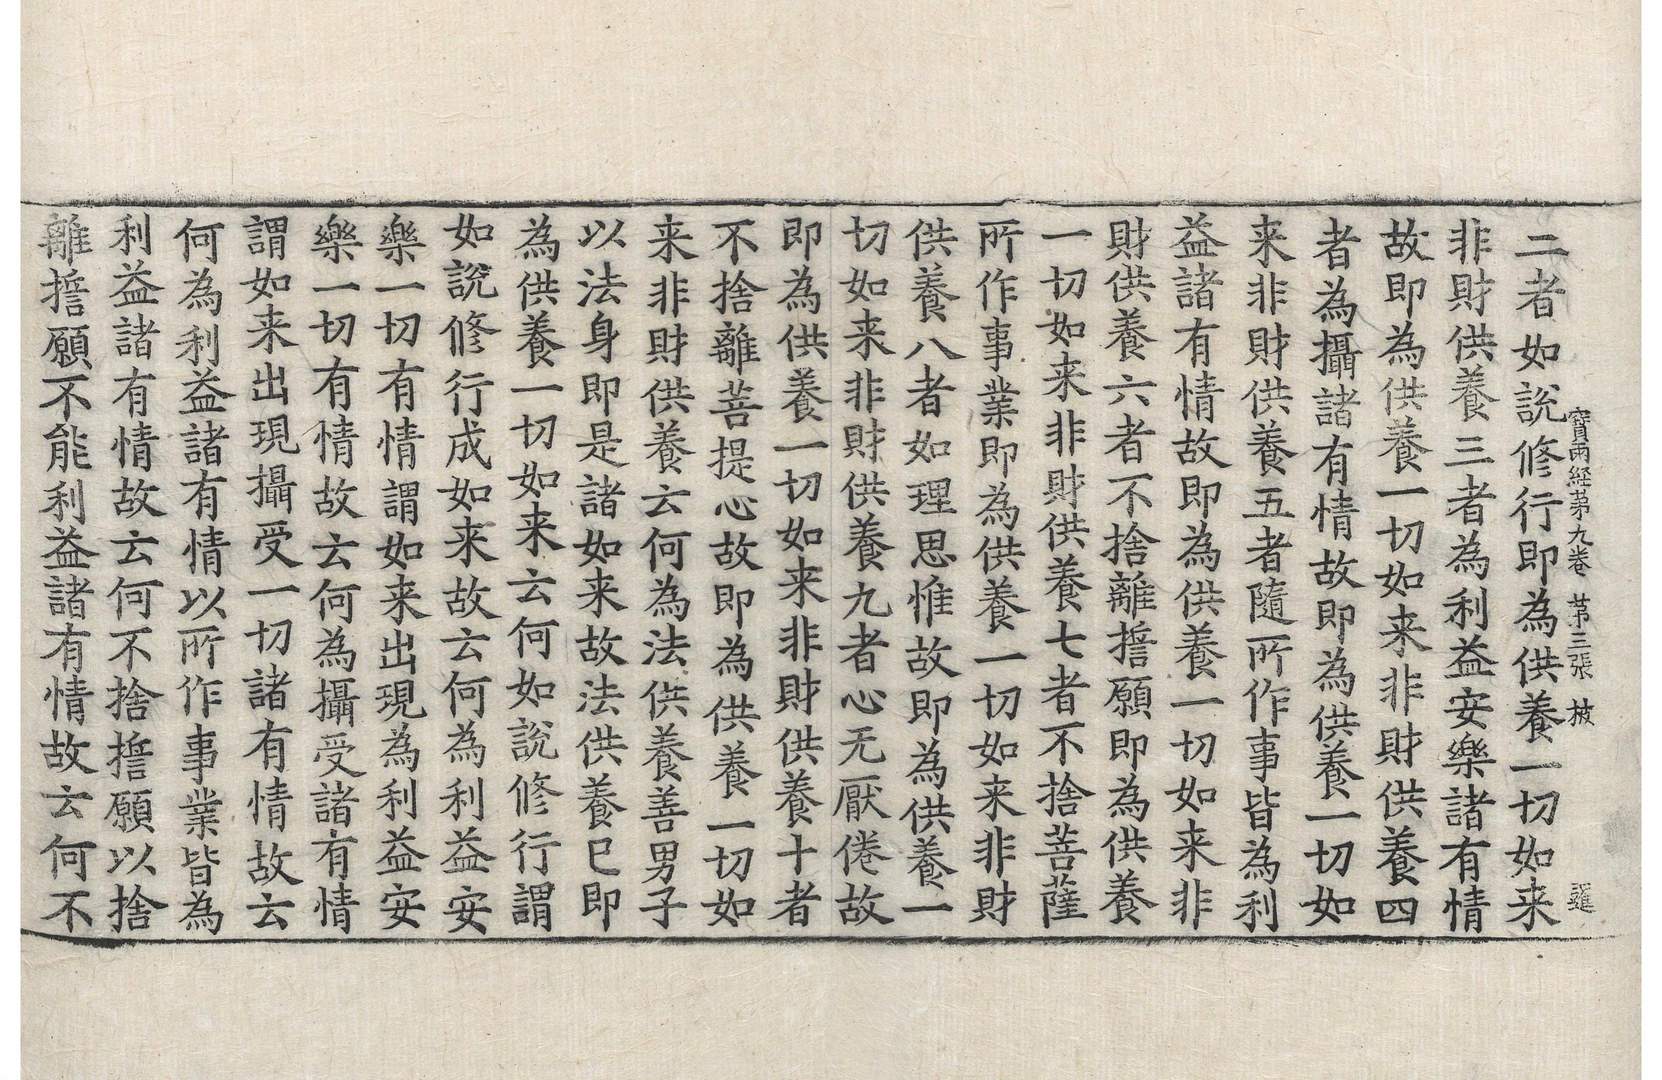 寳雨経苐九卷 苐三張 披
二者如說修行即為供養一切如来
非財供養三者為利益安樂諸有情
故即為供養一切如来非財供養四
者為攝諸有情故即為供養一切如
来非財供養五者隨所作事皆為利
益諸有情故即為供養一切如来非
財供養六者不捨離誓願即為供養
一切如来非財供養七者不捨菩薩
所作事業即為供養一切如来非財
供養八者如理思惟故即為供養一
切如来非財供養九者心无厭倦故
即為供養一切如来非財供養十者
不捨離菩提心故即為供養一切如
来非財供養云何為法供養善男子
以法身即是諸如来故法供養已即
為供養一切如来云何如說修行謂
如說修行成如来故云何為利益安
樂一切有情謂如来出現為利益安
樂一切有情故云何為攝受諸有情
謂如来出現攝受一切諸有情故云
何為利益諸有情以所作事業皆為
利益諸有情故云何不捨誓願以捨
離誓願不能利益諸有情故云何不